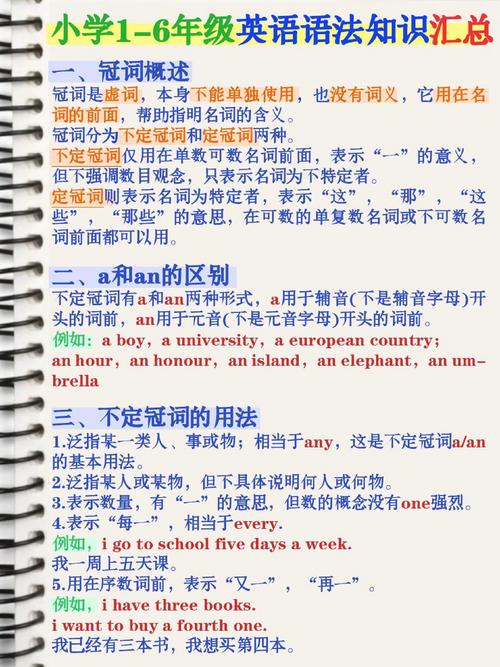 小学1-6年级英语语法知识汇总
一、冠词概述
冠词是虚词，本身不能单独使用，也没有词义，它用在名
词的前面，帮助指明名词的含义。
冠词分为不定冠词和定冠词两种。
不定冠词仅用在单数可数名词前面，表示“一”的意义，
但不强调数目观念，只表示名词为不特定者。
定冠词则表示名词为特定者，表示“这”，“那”，“这
些”，“那些”的意思，在可数的单复数名词或不可数名
词前面都可以用。
二、a和an的区别
不定冠词有a和an两种形式，a用于辅音(下是辅音字母)开
头的词前，an用于元音(下是元音字母)开头的词前。
例如：a boy，a university，a european country；
an hour，an honour，an island，an elephant，an um-
brella
三、不定冠词的用法
1.泛指某一类人、事或物；相当于any，这是不定冠词a/an
的基本用法。
2.泛指某人或某物，但下具体说明何人或何物。
3.表示数量，有“一”的意思，但数的概念没有one强烈。
4.表示“每一”，相当于every.
例如，i go to school five days a week.
我一周上五天课。
5.用在序数词前，表示“又一”，“再一”。
例如，i have three books.
i want to buy a fourth one.
我已经有三本书，我想买第四本。